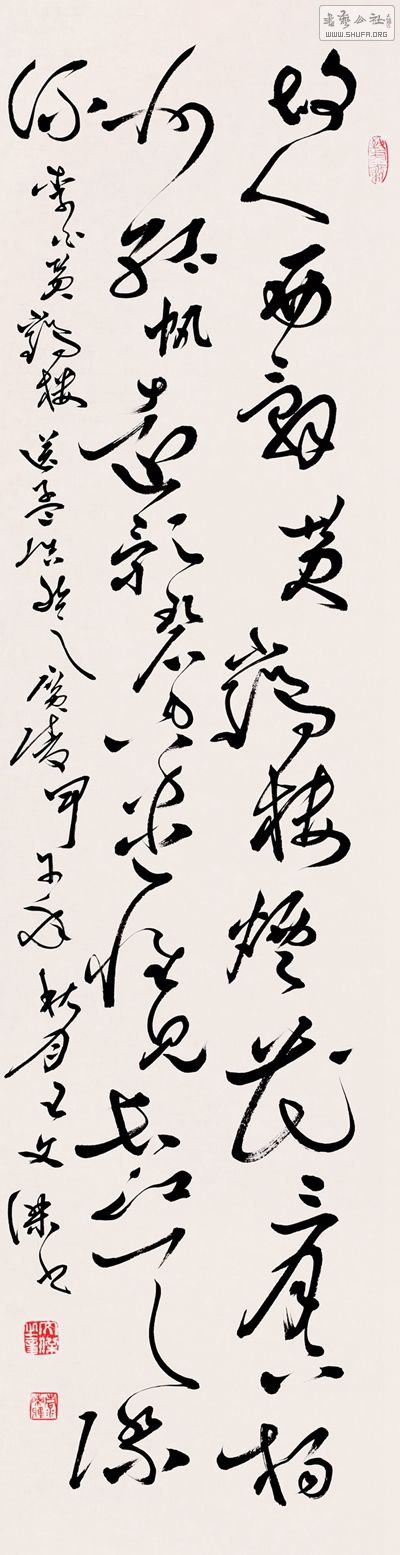 故人西辞黄鹤楼烟花三月下扬
州孤帆远影碧空尽惟见长江天际
流
李白黄鹤楼送孟浩然之广陵甲子年秋月王文杰书
WWW.SHUFA.ORG